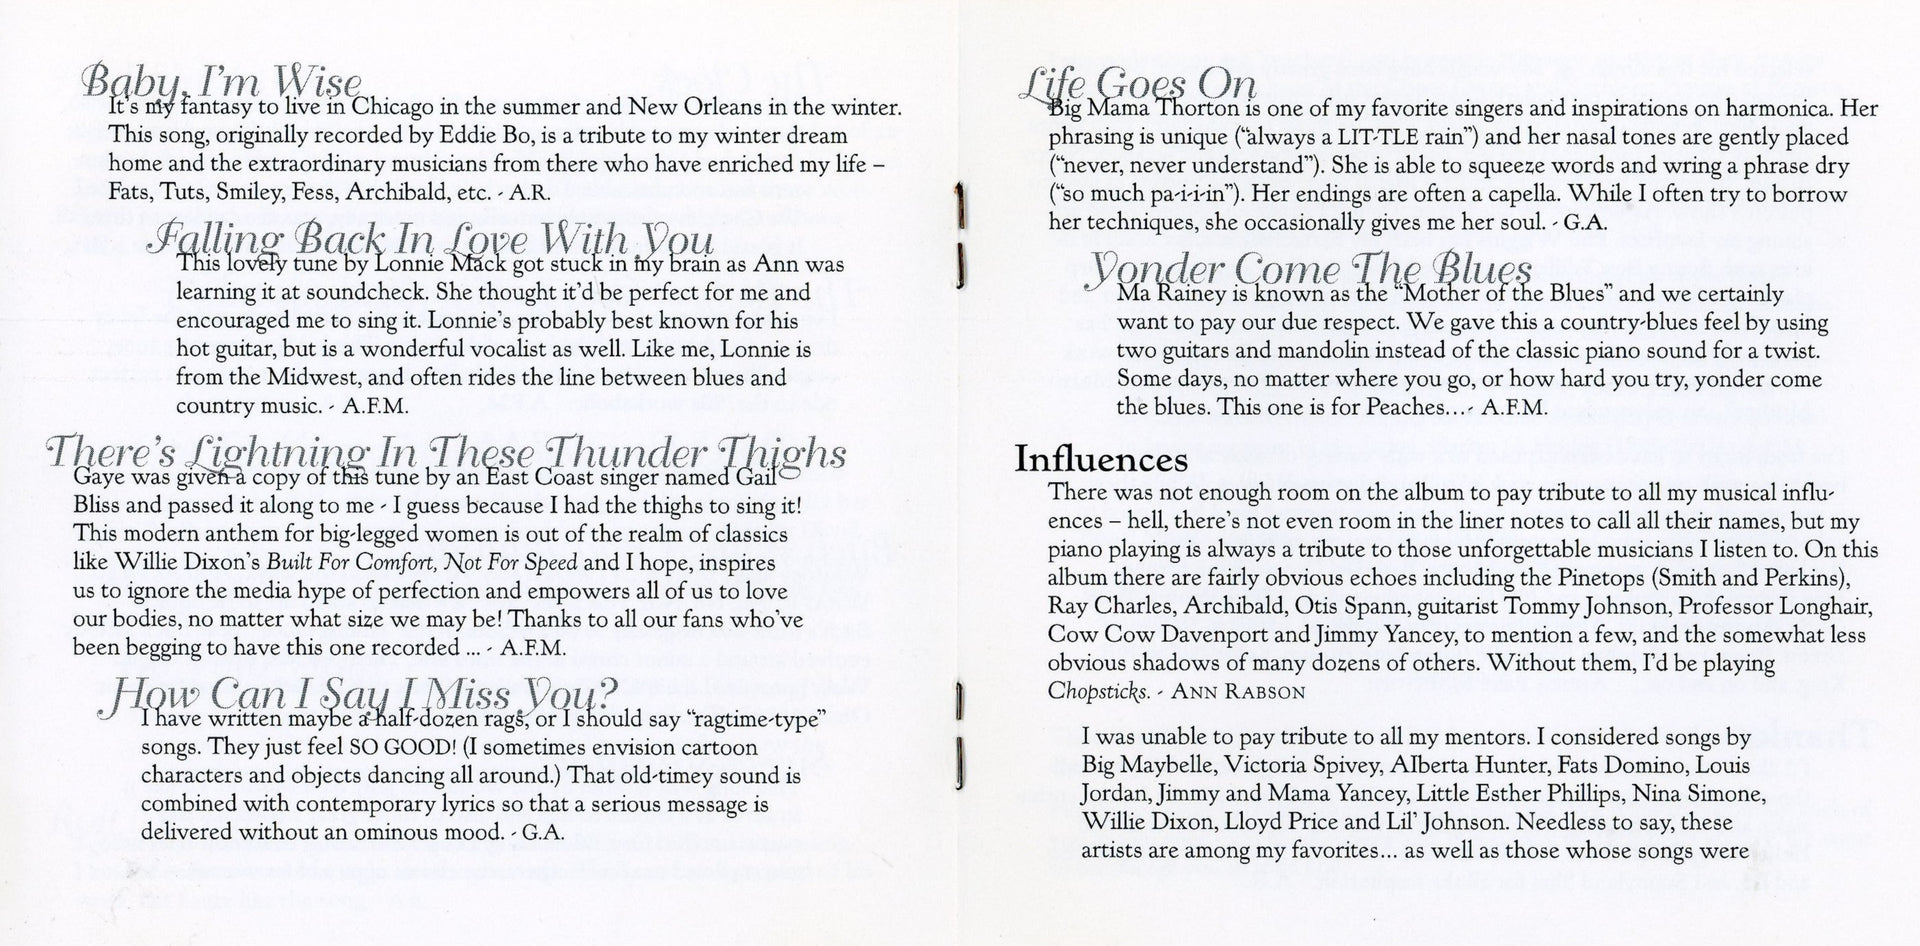 Baby, I'm Wise
It's my fantasy to live in Chicago in the summer and New Orleans in the winter.
This song, originally recorded by Eddie Bo, is a tribute to my winter dream
home and the extraordinary musicians from there who have enriched my life –
Fats, Tuts, Smiley, Fess, Archibald, etc. - A.R.
Falling Back In Love With You
This lovely tune by Lonnie Mack got stuck in my brain as Ann was
learning it at soundcheck. She thought it'd be perfect for me and
encouraged me to sing it. Lonnie's probably best known for his
hot guitar, but is a wonderful vocalist as well. Like me, Lonnie is
from the Midwest, and often rides the line between blues and
country music. - A.F.M.
There's Lightning In These Thunder Thighs
Gaye was given a copy of this tune by an East Coast singer named Gail
Bliss and passed it along to me - I guess because I had the thighs to sing it!
This modern anthem for big-legged women is out of the realm of classics
like Willie Dixon's Built For Comfort, Not For Speed and I hope, inspires
us to ignore the media hype of perfection and empowers all of us to love
our bodies, no matter what size we may be! Thanks to all our fans who've
been begging to have this one recorded ... - A.F.M.
How Can I Say I Miss You?
I have written maybe a half-dozen rags, or I should say “ragtime-type”
songs. They just feel SO GOOD! (I sometimes envision cartoon
characters and objects dancing all around.) That old-timey sound is
combined with contemporary lyrics so that a serious message is
delivered without an ominous mood. - G.A.
Life Goes On
Big Mama Thorton is one of my favorite singers and inspirations on harmonica. Her
phrasing is unique (“always a LIT-TLE rain”) and her nasal tones are gently placed
(“never, never understand”). She is able to squeeze words and wring a phrase dry
(“so much pa-i-i-in”). Her endings are often a capella. While I often try to borrow
her techniques, she occasionally gives me her soul. - G.A.
Yonder Come The Blues
Ma Rainey is known as the “Mother of the Blues” and we certainly
want to pay our due respect. We gave this a country-blues feel by using
two guitars and mandolin instead of the classic piano sound for a twist.
Some days, no matter where you go, or how hard you try, yonder come
the blues. This one is for Peaches...- A.F.M.
Influences
There was not enough room on the album to pay tribute to all my musical influ-
ences – hell, there's not even room in the liner notes to call all their names, but my
piano playing is always a tribute to those unforgettable musicians I listen to. On this
album there are fairly obvious echoes including the Pinetops (Smith and Perkins),
Ray Charles, Archibald, Otis Spann, guitarist Tommy Johnson, Professor Longhair,
Cow Cow Davenport and Jimmy Yancey, to mention a few, and the somewhat less
obvious shadows of many dozens of others. Without them, I'd be playing
Chopsticks. - ANN RABSON
I was unable to pay tribute to all my mentors. I considered songs by
Big Maybelle, Victoria Spivey, Alberta Hunter, Fats Domino, Louis
Jordan, Jimmy and Mama Yancey, Little Esther Phillips, Nina Simone,
Willie Dixon, Lloyd Price and Lil' Johnson. Needless to say, these
artists are among my favorites... as well as those whose songs were